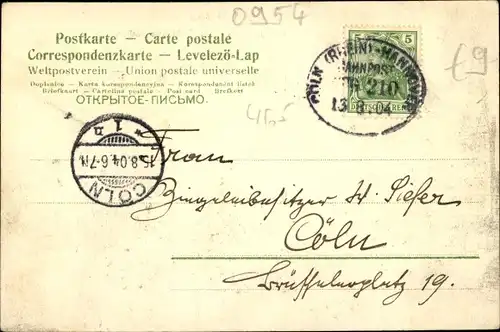 0954
Postkarte — Carte postale
Correspondenzkarte — Levelező-Lap
Weltpostverein — Union postale universelle
Dopisnice — Karta korespondencyjna — Korespondenční lístek
Briefkaart — Cartolina postale — Post card — Brefkort
ОТКРЫТОЕ-ПИСЬМО.
5 5
CÖLN (RHEIN)-HANNOVER
BAHNPOST
210
13 8 04
€9
* 1 n
15.8.04. 6-7N.
CÖLN
Frau
Ziegeleibesitzer
Cöln
Brüsselerplatz 19.